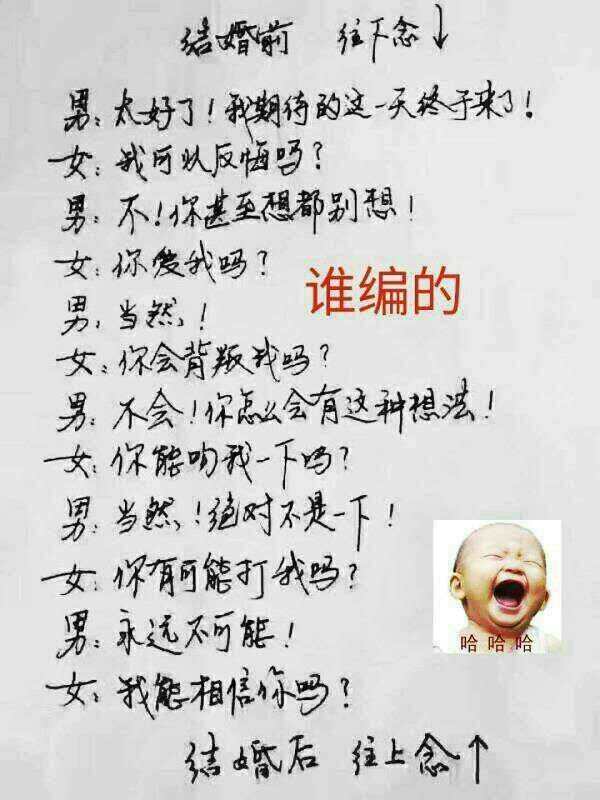 结婚前 往下念↓
男：太好了！我期待的这一天终于来了！
女：我可以反悔吗？
男：不！你甚至想都别想！
女：你爱我吗？
谁编的
男：当然！
女：你会背叛我吗？
男：不会！你怎么会有这种想法！
女：你能吻我一下吗？
男：当然！绝对不是一下！
女：你有可能打我吗？
男：永远不可能！
哈哈哈
女：我能相信你吗？
结婚后 往上念↑